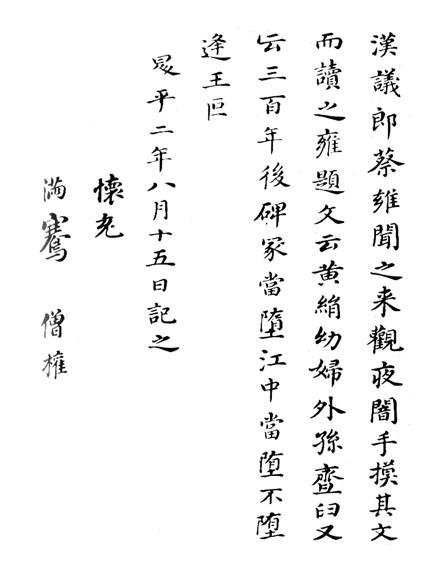 漢議郎蔡雍聞之来觀夜闇手摸其文
而讀之雍題文云黃絹幼婦外孫齏臼又
云三百年後碑冢當墮江中當墮不墮
逢王叵
昇平二年八月十五日記之
懷充
滿騫 僧權